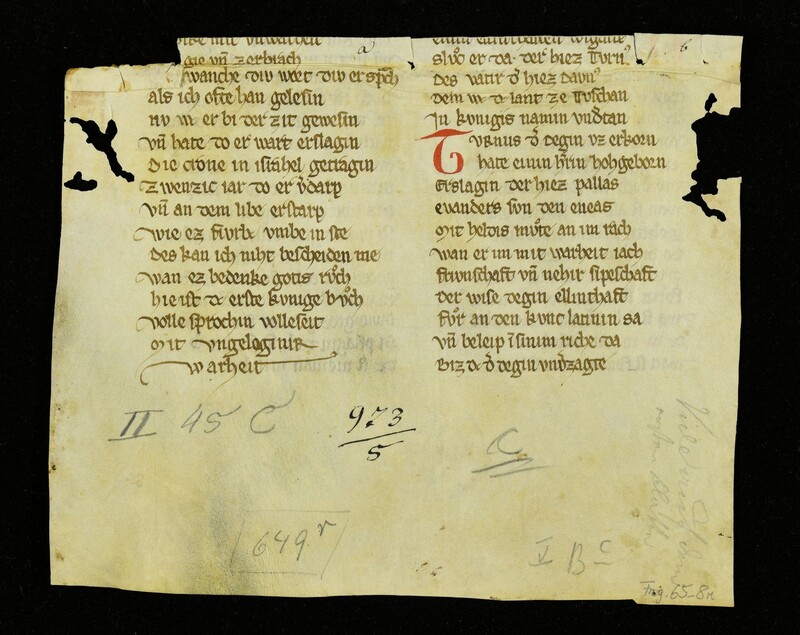 gie vñ zerbrach
swanche div wort div er sp̄ch
als ich ofte han gelesin
nv w̾ er bi der zit gewesin
vñ hate do er wart erslagin
Die crone in israhel getragin
zwenzic iar do er v̾darp
vñ an dem libe erstarp
wie ez
des kan ich niht bescheiden me
wan ez bedenke gotis
hie ist dc erste kvnige bvͦch
volle sprochin volleseit
mit vngeloginir
warheit
slvͦc er da. der hiez Tvrn᾿
des vatir d̾ hiez davn᾿
dem w̾ dc lant ze Tvschan
In kvnigis namin vnd̾tan
Tvrnus d̾ degin vz erkorn
hate einin h̾rin hohgeborn
erslagin der hiez pallas
evanders svn den eneas
Mit heldis mvͦte an im rach
wan er im mit warheit iach
frivnschaft vñ nehir sipeschaft
der wise degin ellinthaft
fvͦr an den kvnc latinin sa
vñ beleip ī sinim riche da
Biz dc d̾ degin vnv̾zagte
II 45 C
973
5
C
649ʳ
I B c
Frag. 65-8r